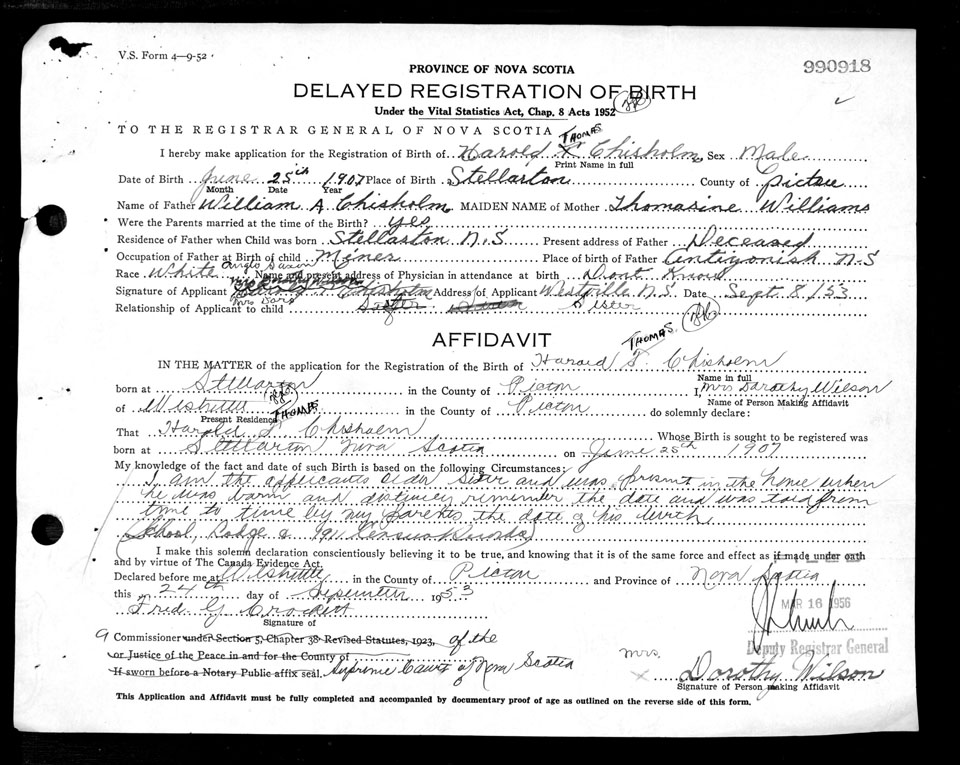 V.S. Form 4—9-52
990918
PROVINCE OF NOVA SCOTIA
DELAYED REGISTRATION OF BIRTH
Under the Vital Statistics Act, Chap. 8 Acts 1952
TO THE REGISTRAR GENERAL OF NOVA SCOTIA
THOMAS
I hereby make application for the Registration of Birth of Harold T Chisholm Sex Male
Print Name in full
Date of Birth June 25th 1907 Place of Birth Stellarton County of Pictou
Month Date Year
Name of Father William A Chisholm MAIDEN NAME of Mother Thomasine Williams
Were the Parents married at the time of the Birth? yes
Residence of Father when Child was born Stellarton N.S Present address of Father Deceased
Occupation of Father at Birth of child Miner Place of birth of Father Antigonish N-S
Race White Anglo Saxon Name and present address of Physician in attendance at birth Dont Know
Signature of Applicant Address of Applicant Westville N.S. Date Sept 8/53
Relationship of Applicant to child Sister
AFFIDAVIT
THOMAS
IN THE MATTER of the application for the Registration of Birth of Harold T. Chisholm
Name in full
born at Stellarton in the County of Picton I, Mrs Dorothy Wilson
Name of Person Making Affidavit
of Westville in the County of Picton do solemnly declare:
Present Residence
THOMAS
That Harold T Chisholm Whose Birth is sought to be registered was
born at Stellarton Nova Scotia on June 25th 1907
My knowledge of the fact and date of such Birth is based on the following Circumstances:
I am the applicants older sister and was present in the home when
he was born and distincly remember the date and was told from
time to time by my parents the date of his birth
(School, Lodge & 1911 Census Records)
I make this solemn declaration conscientiously believing it to be true, and knowing that it is of the same force and effect as if made under oath
and by virtue of The Canada Evidence Act.
Declared before me at Westville in the County of Picton and Province of Nova Scotia
this 24th day of September 1953
MAR 16 1956
Fred G Crockett
Signature of
Deputy Registrar General
a Commissioner under Section 5, Chapter 38 Revised Statutes, 1923, of the
or Justice of the Peace in and for the County of
If sworn before a Notary Public affix seal. Supreme Court of Nova Scotia
Mrs. Dorothy Wilson
Signature of Person making Affidavit
This Application and Affidavit must be fully completed and accompanied by documentary proof of age as outlined on the reverse side of this form.